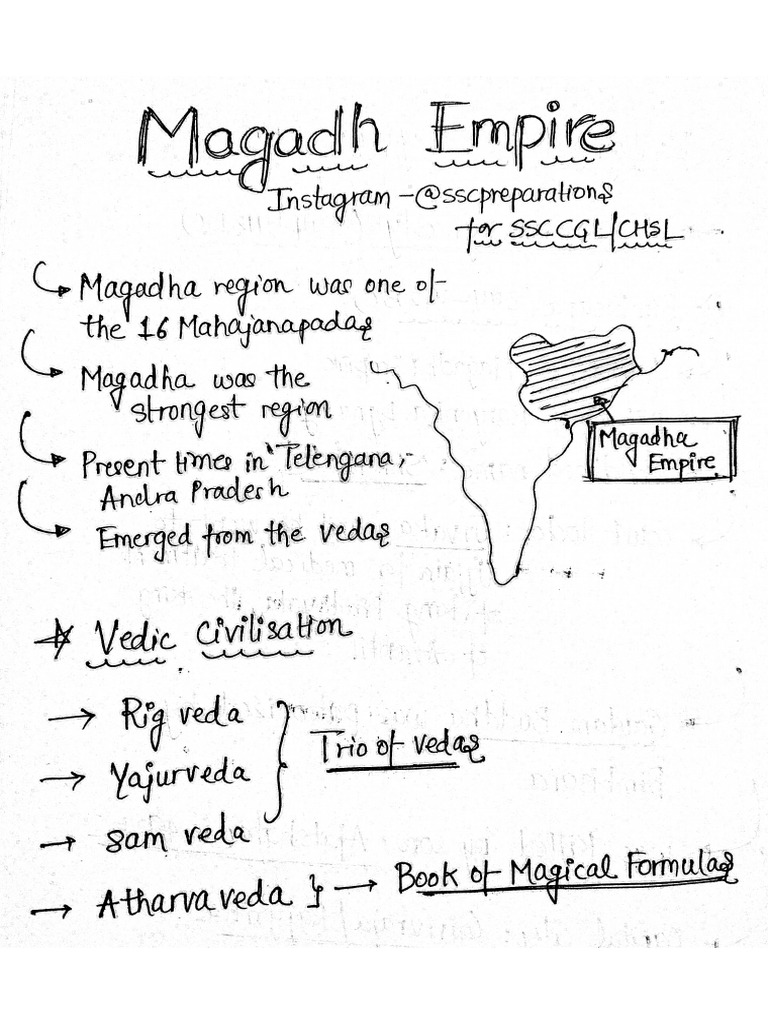 Magadh Empire
Instagram - @sscpreparations
for SSCCGL/CHSL
Magadha region was one of
the 16 Mahajanapadas
Magadha was the
strongest region
Present times in Telengana,
Andra Pradesh
Emerged from the vedas
Magadha
Empire
Vedic Civilisation
→ Rig veda
Trio of vedas
→ Yajurveda
→ Sam veda
→ Atharvaveda } → Book of Magical Formulas